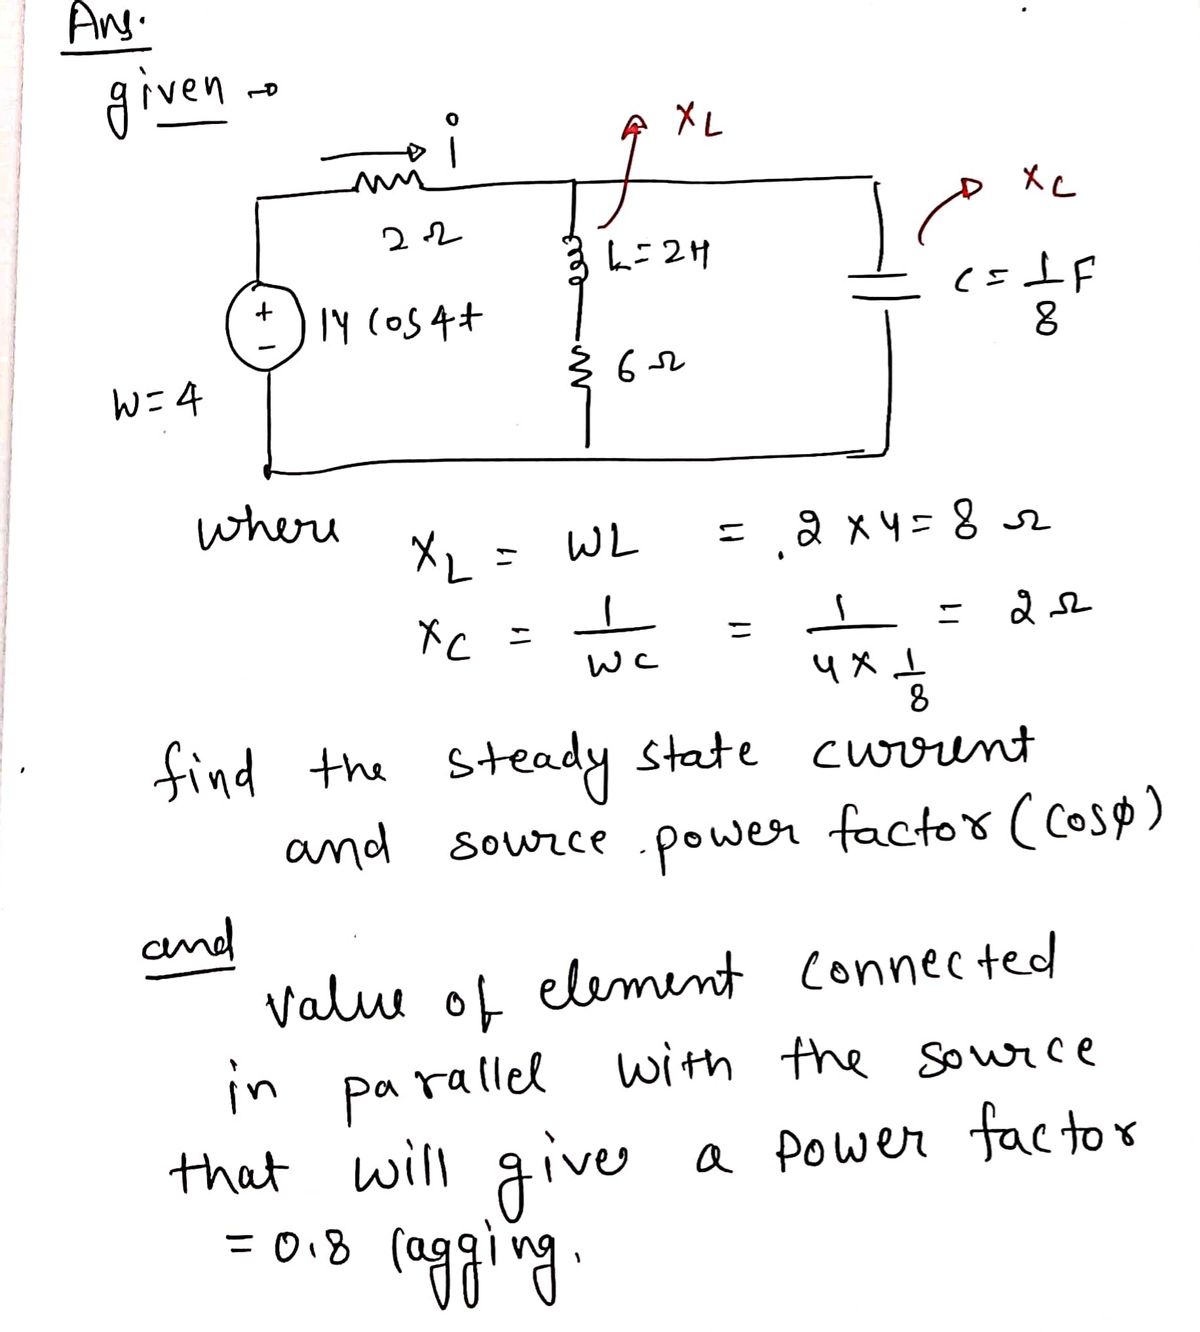 Ans.
given →
i
XL
XC
2Ω
L = 2H
C = 1/8 F
+
-
14 cos 4t
6Ω
W = 4
where
XL = WL = 2 × 4 = 8 Ω
XC = 1/WC = 1/(4 × 1/8) = 2 Ω
find the steady state current
and source power factor (cosφ)
and
value of element connected
in parallel with the source
that will give a power factor
= 0.8 lagging.